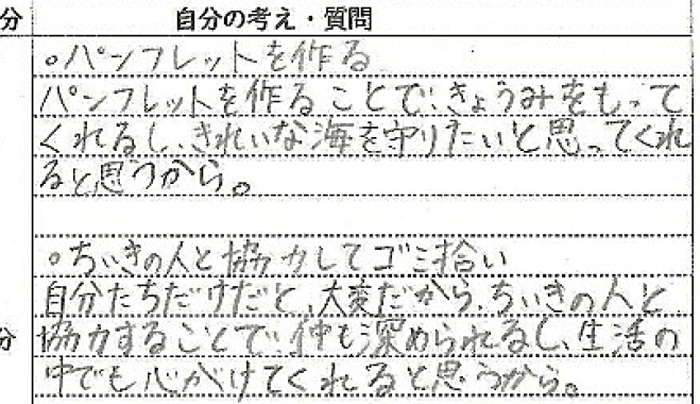 分 自分の考え・質問
○パンフレットを作る
パンフレットを作ることで、きょうみをもって
くれるし、きれいな海を守りたいと思ってくれ
ると思うから。
○ちいきの人と協力してゴミ拾い
自分たちだけだと、大変だから、ちいきの人と
分 協力することで、仲も深められるし、生活の
中でも心がけてくれると思うから。